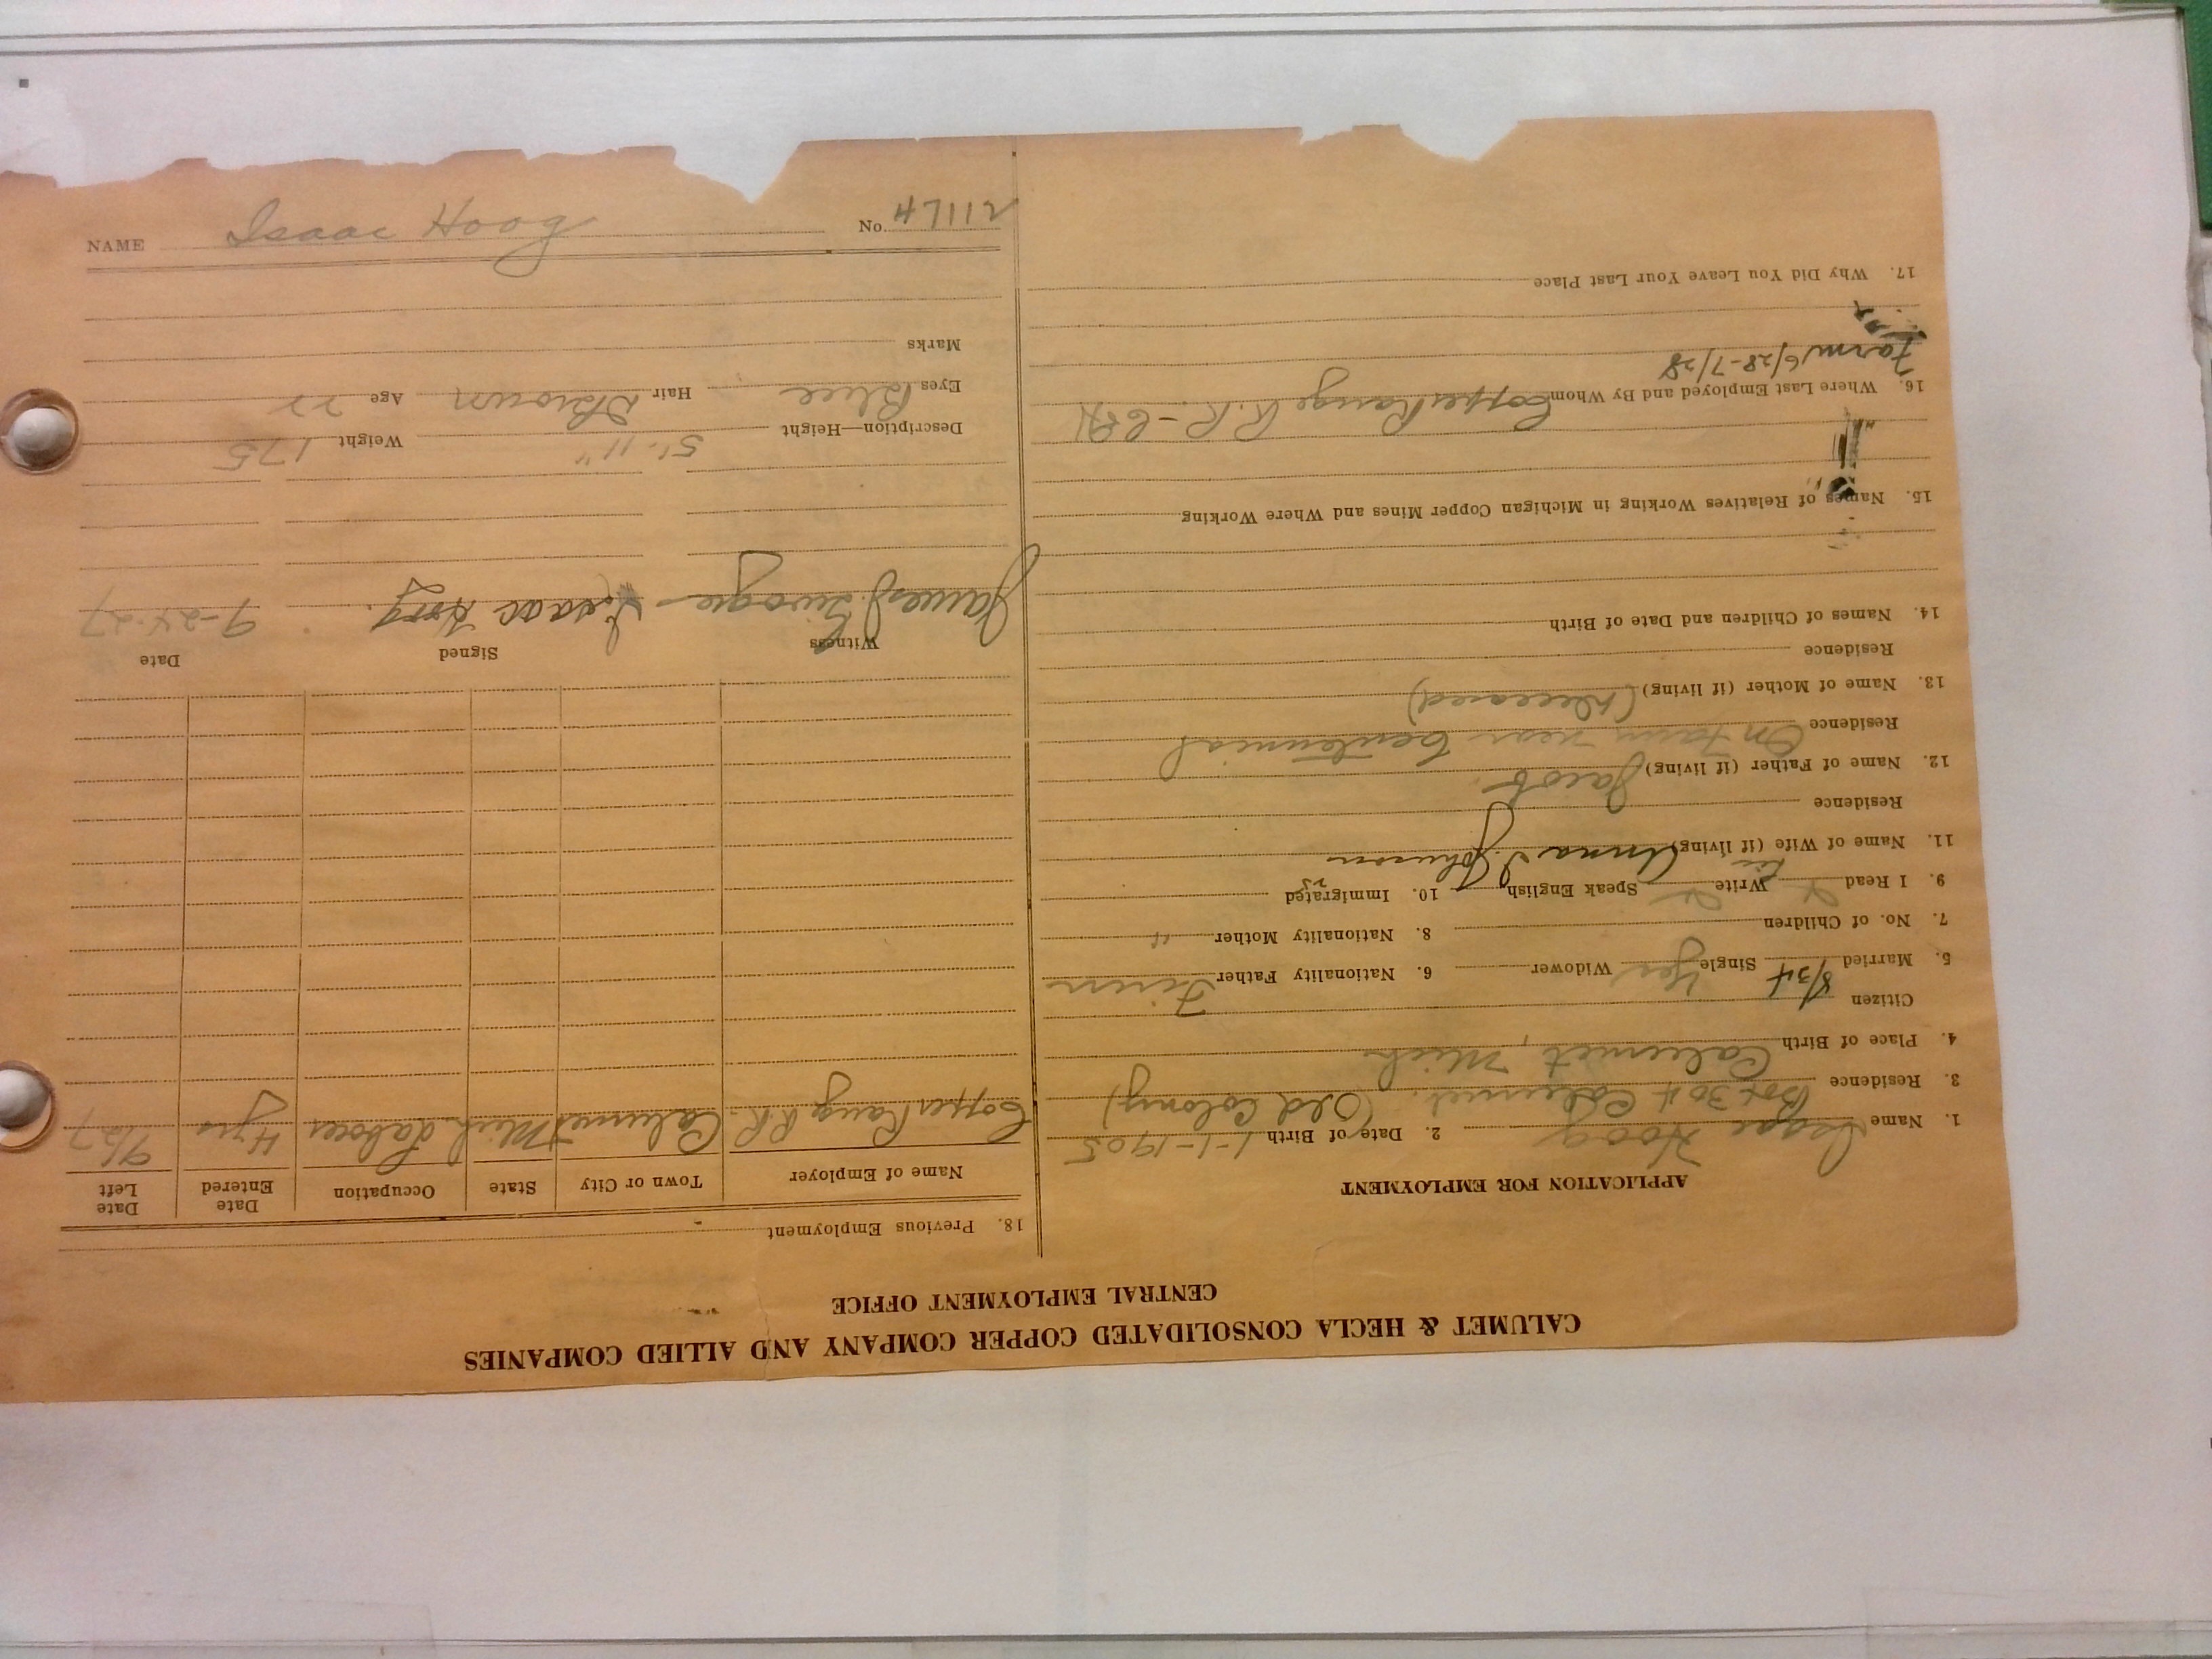 CALUMET & HECLA CONSOLIDATED COPPER COMPANY AND ALLIED COMPANIES
CENTRAL EMPLOYMENT OFFICE
APPLICATION FOR EMPLOYMENT
1. Name Isaac Hoog 2. Date of Birth 1-1-1905
3. Residence Box 304 Calumet. (Old Colony)
4. Place of Birth Calumet, Mich
Citizen
5. Married 8/34 Single Yes Widower 6. Nationality Father Finn
7. No. of Children 8. Nationality Mother "
9. I Read Write Speak English 10. Immigrated
11. Name of Wife (if living) Anna I. Johnson
Residence
12. Name of Father (if living) Jacob
Residence On farm near Centennial
13. Name of Mother (if living) (Deceased)
Residence
14. Names of Children and Date of Birth
15. Names of Relatives Working in Michigan Copper Mines and Where Working
16. Where Last Employed and By Whom Copper Range R.R.
Farm 6/28-7/28
17. Why Did You Leave Your Last Place
18. Previous Employment
Name of Employer Town or City State Occupation Date Entered Date Left
Copper Range R.R. Calumet Mich Labor 4 yrs 9/27
Witness Signed Date
James J. Isaac Hoog. 9-24-27
Description—Height 5'-11" Weight 175
Eyes Blue Hair DBrown Age 22
Marks
NAME Isaac Hoog No.